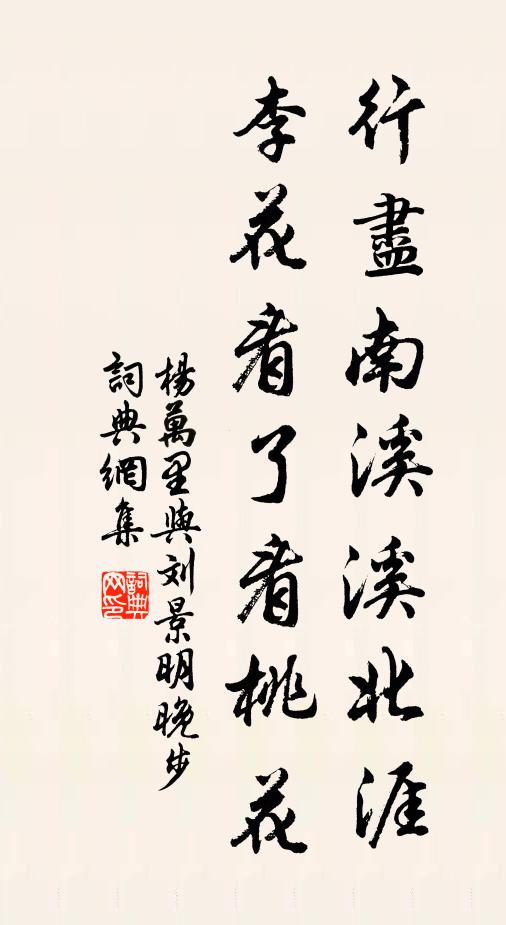 行盡南溪溪北涯
李花看了看桃花
楊萬里與刘景明晚步
詞典網集
詞典网印